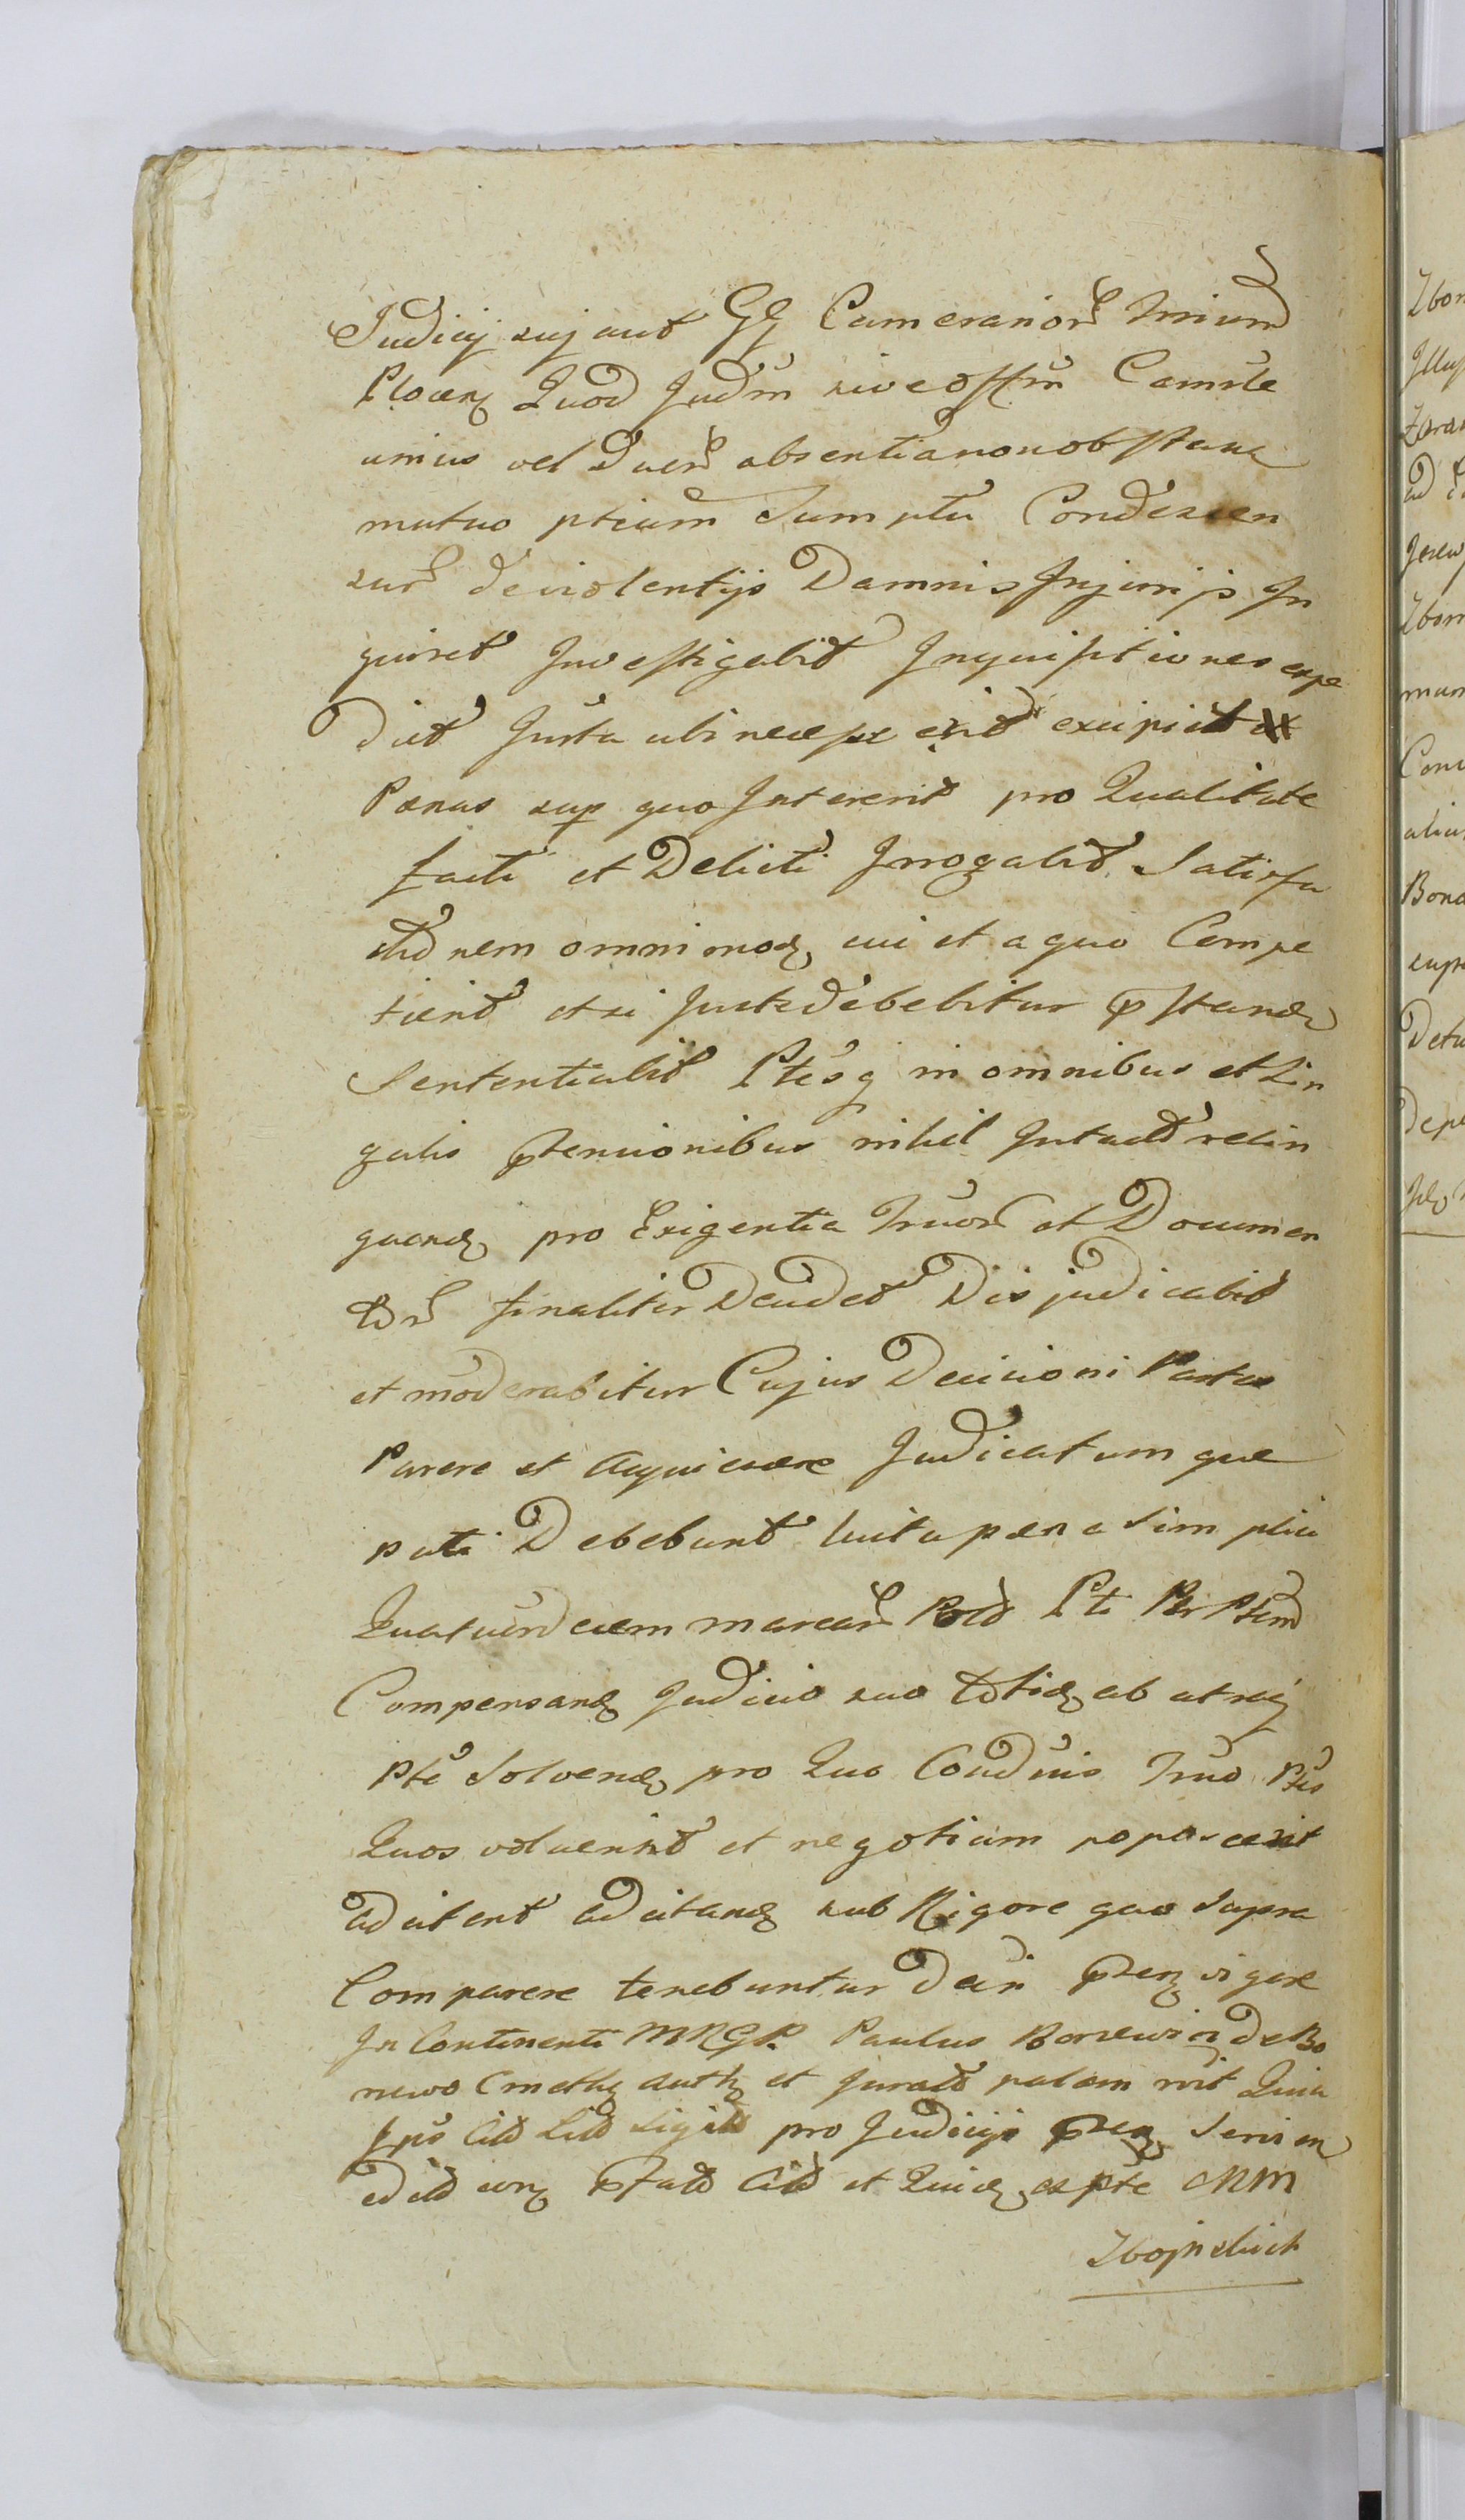 Judicij suj aut GG Camerarior Trium
Plocen Quod Judm sive Offm Camrle
unius vel Duor absentia non obstane
mutuo ptium Sumptu Condescen
sur de violentijs Damnis Injurijs In
quiret Investigabit Inquisitiones expe
diet Jurta ubi necesse erit excipiet
Pænas sup quo Intererit pro Qualitate
facti et Delicti Irrogabit Satisfa
ctionem omnimod cui et a quo Compe
tierit et si juste debebitur pstand
Sententiabit Ptesq in omnibus et Sin
gulis ptensionibus nihil Intact relin
quend pro Exigentia Jruor et Documen
tor finaliter Decidet Disjudicabit
et moderabitur Cujus Decisioni Partes
Parere et acquiescere Judicatumque
pati Debebunt luita pæna simplici
Quatuordecem marcar Pold Pti Per Ptem
Compensand Judicio suo totid ab utraq
Pte Solvend pro Quo Condnis Trno Ptes
Quos voluerint et negotium poposcerit
adcitent adcitand sub Rigore quo Supra
Comparere tenebuntur Dein pten vigore
In Continenti MRGP. Paulus Borzewicz de Bo
newo Cmetho auth et Jurat palam rvit Quia
Ips Citt Litt Sigitt pro Judicijs pten Servien
edidit eorq pfatt Citt et Quid ex pte MM
Zbojnskich
Zbon
Conv
Bona
supr